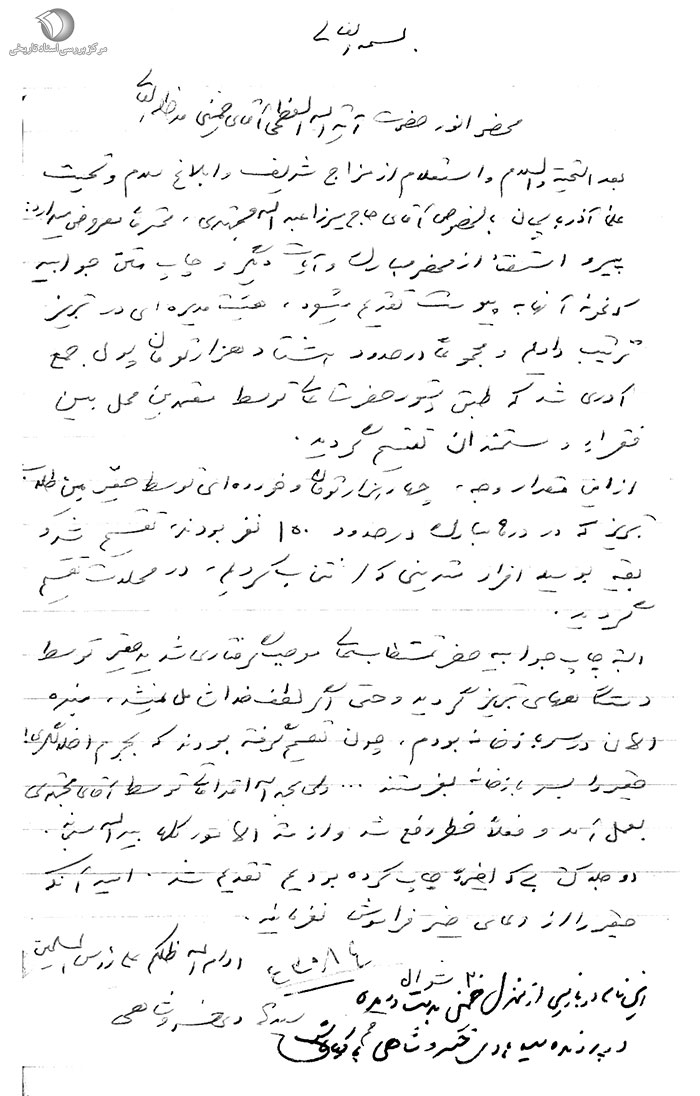 مرکز بررسی اسناد تاریخی
بسمه تعالی
محضر انور حضرت آیة الله العظمی آقای خمینی مد ظله العالی
بعد التحیة والسلام و استعلام از مزاج شریف و ابلاغ سلام و تحیت
علماء آذربایجان بالخصوص آقای حاج میرزا عبدالله مجتهدی، محترماً معروض میدارد:
پیرو استفتاء از محضر مبارک و آیات دیگر و چاپ متن جوابیه
که نمونه آنها به پیوست تقدیم میشود، هیئت مدیره ای در تبریز
ترتیب دادیم و مجموعاً در حدود هشتاد هزار تومان پول جمع
آوری شد که طبق دستور حضرتعالی توسط معتمدین محل بین
فقراء و مستمندان تقسیم گردید.
از این مقدار وجه، چهار هزار تومان و خورده ای توسط حقیر بین طلاب
تبریز که در ماه مبارک در حدود ۱۵۰ نفر بودند، تقسیم شد و
بقیه بوسیله افراد متدینی که انتخاب کردیم، در محلات تقسیم
گردید.
البته چاپ جوابیه حضرت مستطابعالی موجب گرفتاری شدید حقیر توسط
دستگاههای تبریز گردید و حتی اگر لطف خدا شامل نمیشد، بنده
الان در سربازخانه بودم، چون تصمیم گرفته بودند که بجرم اخلالگری!
حقیر را بسربازخانه بفرستند ... ولی بحمدالله اقداماتی توسط آقای مجتهدی
بعمل آمد و فعلاً خطر رفع شد و ازمة الامور کلها بید الله سبحانه.
دو جلد کتابی که اخیراً چاپ کرده بودیم تقدیم شد. امید آنکه
حقیر را از دعای خیر فراموش نفرمایید.
ادام الله ظلکم علی رؤس المسلمین
۳۰ شوال
سید هادی خسروشاهی
این نامه در بازرسی از منزل خمینی بدست آمده
در پرونده سید هادی خسروشاهی